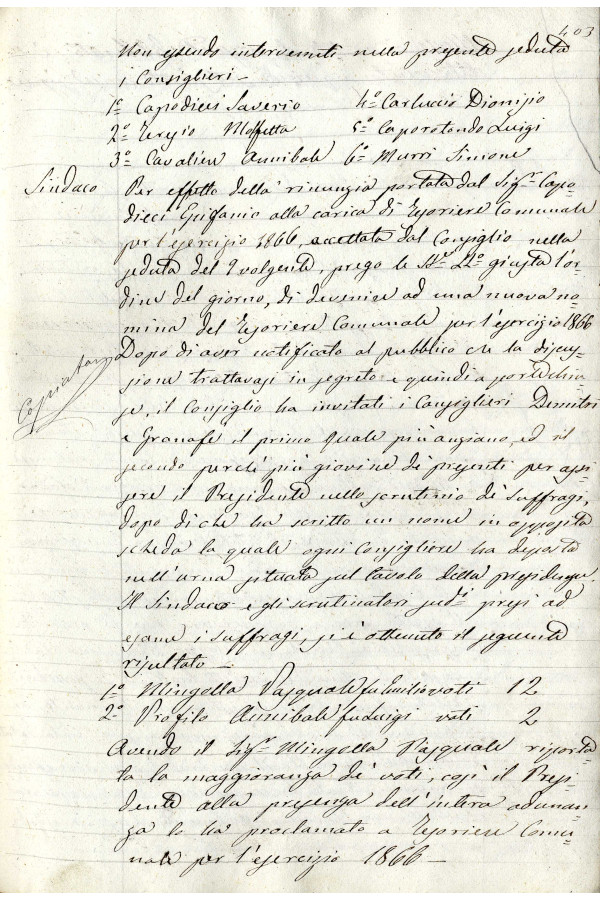 403
Non essendo intervenuti nella presente seduta
i Consiglieri —
1º Capodieci Saverio 4º Carluccio Dionisio
2º Tersio Moffetta 5º Caporotondo Luigi
3º Cavaliere Annibale 6º Murri Simone
Sindaco Per effetto della rinunzia portata dal Sigr. Capo=
dieci Epifanio alla carica di Tesoriere Comunale
per l'esercizio 1866, accettata dal Consiglio nella
seduta del 9 volgente, prego le giusta l'or=
dine del giorno, di devenire ad una nuova no=
mina del Tesoriere Comunale per l'esercizio 1866
Dopo di aver notificato al pubblico che la discus=
sione trattavasi in segreto e quindi a porte chiu=
se, il Consiglio ha invitati i Consiglieri Dimitri
e Granafe il primo quale più anziano, ed il
secondo perché più giovine de' presenti per assi=
stere il Presidente nello scrutinio de' suffragi,
dopo di che ha scritto un nome in apposita
scheda la quale ogni Consigliere ha deposta
nell'urna situata sul tavolo della presidenza.
Il Sindaco e gli scrutinatori sudi. presi ad
esame i suffragi, si è ottenuto il seguente
risultato —
1º Mingolla Pasquale fu Emilio voti 12
2º Profilo Annibale fu Luigi voti 2
Avendo il Sigr. Mingolla Pasquale riporta=
ta la maggioranza de' voti, così il Presi=
dente alla presenza dell'intera adunan=
za lo ha proclamato a Tesoriere Comu=
nale per l'esercizio 1866 —